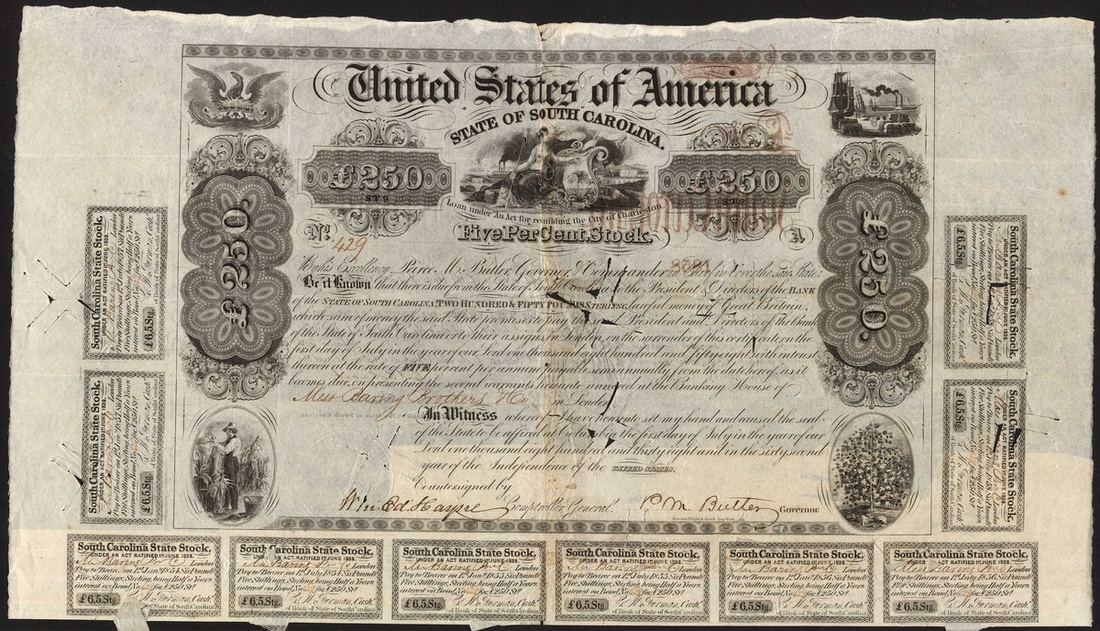 United States of America
STATE OF SOUTH CAROLINA.
£250
STG
£250
STG
£250.
£250.
Loan under "An Act for rebuilding the City of Charleston"
Five Per Cent. Stock.
No. 429
A
By his Excellency Pierce M. Butler, Governor & Commander in Chief in & over the said State:
Be it Known that there is due from the State of South Carolina to the President & Directors of the BANK
of the STATE OF SOUTH CAROLINA, TWO HUNDRED & FIFTY POUNDS STERLING, lawful money of Great Britain,
which sum of money the said State promises to pay the said President and Directors of the Bank
of the State of South Carolina to their assigns in London, on the surrender of this certificate, on the
first day of July in the year of our Lord one thousand eight hundred and fifty eight with interest
thereon at the rate of FIVE per cent per annum payable semi annually from the date hereof as it
becomes due, on presenting the several warrants hereunto annexed at the Banking House of
Mess Baring Brothers & Co in London
In Witness whereof I have hereunto set my hand and caused the seal
of the State to be affixed at Columbia the first day of July in the year of our
Lord one thousand eight hundred and thirty eight and in the sixty second
year of the Independence of the UNITED STATES.
Countersigned by
Wm Ed Hayne Comptroller General. P M Butler Governor
South Carolina State Stock.
UNDER AN ACT RATIFIED 1ST JUNE 1838.
London
Pay to Bearer on 1st July 1857, Six Pounds
Five Shillings, Sterling, being Half a Years
interest on Bond, No. for £250 Stg
£6,5,Stg.
South Carolina State Stock.
UNDER AN ACT RATIFIED 1ST JUNE 1838.
London
Pay to Bearer on 1st Jany 1857, Six Pounds
Five Shillings, Sterling, being Half a Years
interest on Bond, No. for £250 Stg
£6,5,Stg.
South Carolina State Stock.
£6,5,Stg.
South Carolina State Stock.
UNDER AN ACT RATIFIED 1ST JUNE 1838.
London
Pay to Bearer on 1st Jany 1858, Six Pounds
Five Shillings, Sterling, being Half a Years
£6,5,Stg.
South Carolina State Stock.
UNDER AN ACT RATIFIED 1ST JUNE 1838.
London
Pay to Bearer on 1st Jany 1854, Six Pounds
Five Shillings, Sterling, being Half a Years
interest on Bond, No. for £250 Stg
£6,5,Stg.
of Bank of State of South Carolina
South Carolina State Stock.
UNDER AN ACT RATIFIED 1ST JUNE 1838.
London
Five Shillings, Sterling, being Half a Years
interest on Bond, No. for £250 Stg
£6,5,Stg.
of Bank of State of South Carolina
South Carolina State Stock.
UNDER AN ACT RATIFIED 1ST JUNE 1838.
London
Pay to Bearer on 1st July 1855, Six Pounds
Five Shillings, Sterling, being Half a Years
interest on Bond, No. for £250 Stg
£6,5,Stg.
of Bank of State of South Carolina
South Carolina State Stock.
UNDER AN ACT RATIFIED 1ST JUNE 1838.
London
Five Shillings, Sterling, being Half a Years
interest on Bond, No. for £250 Stg
£6,5,Stg.
of Bank of State of South Carolina
South Carolina State Stock.
UNDER AN ACT RATIFIED 1ST JUNE 1838.
London
Pay to Bearer on 1st Jany 1856, Six Pounds
Five Shillings, Sterling, being Half a Years
interest on Bond, No. for £250 Stg
£6,5,Stg.
of Bank of State of South Carolina
South Carolina State Stock.
UNDER AN ACT RATIFIED 1ST JUNE 1838.
London
Pay to Bearer on 1st July 1856, Six Pounds
Five Shillings, Sterling, being Half a Years
interest on Bond, No. for £250 Stg
£6,5,Stg.
of Bank of State of South Carolina